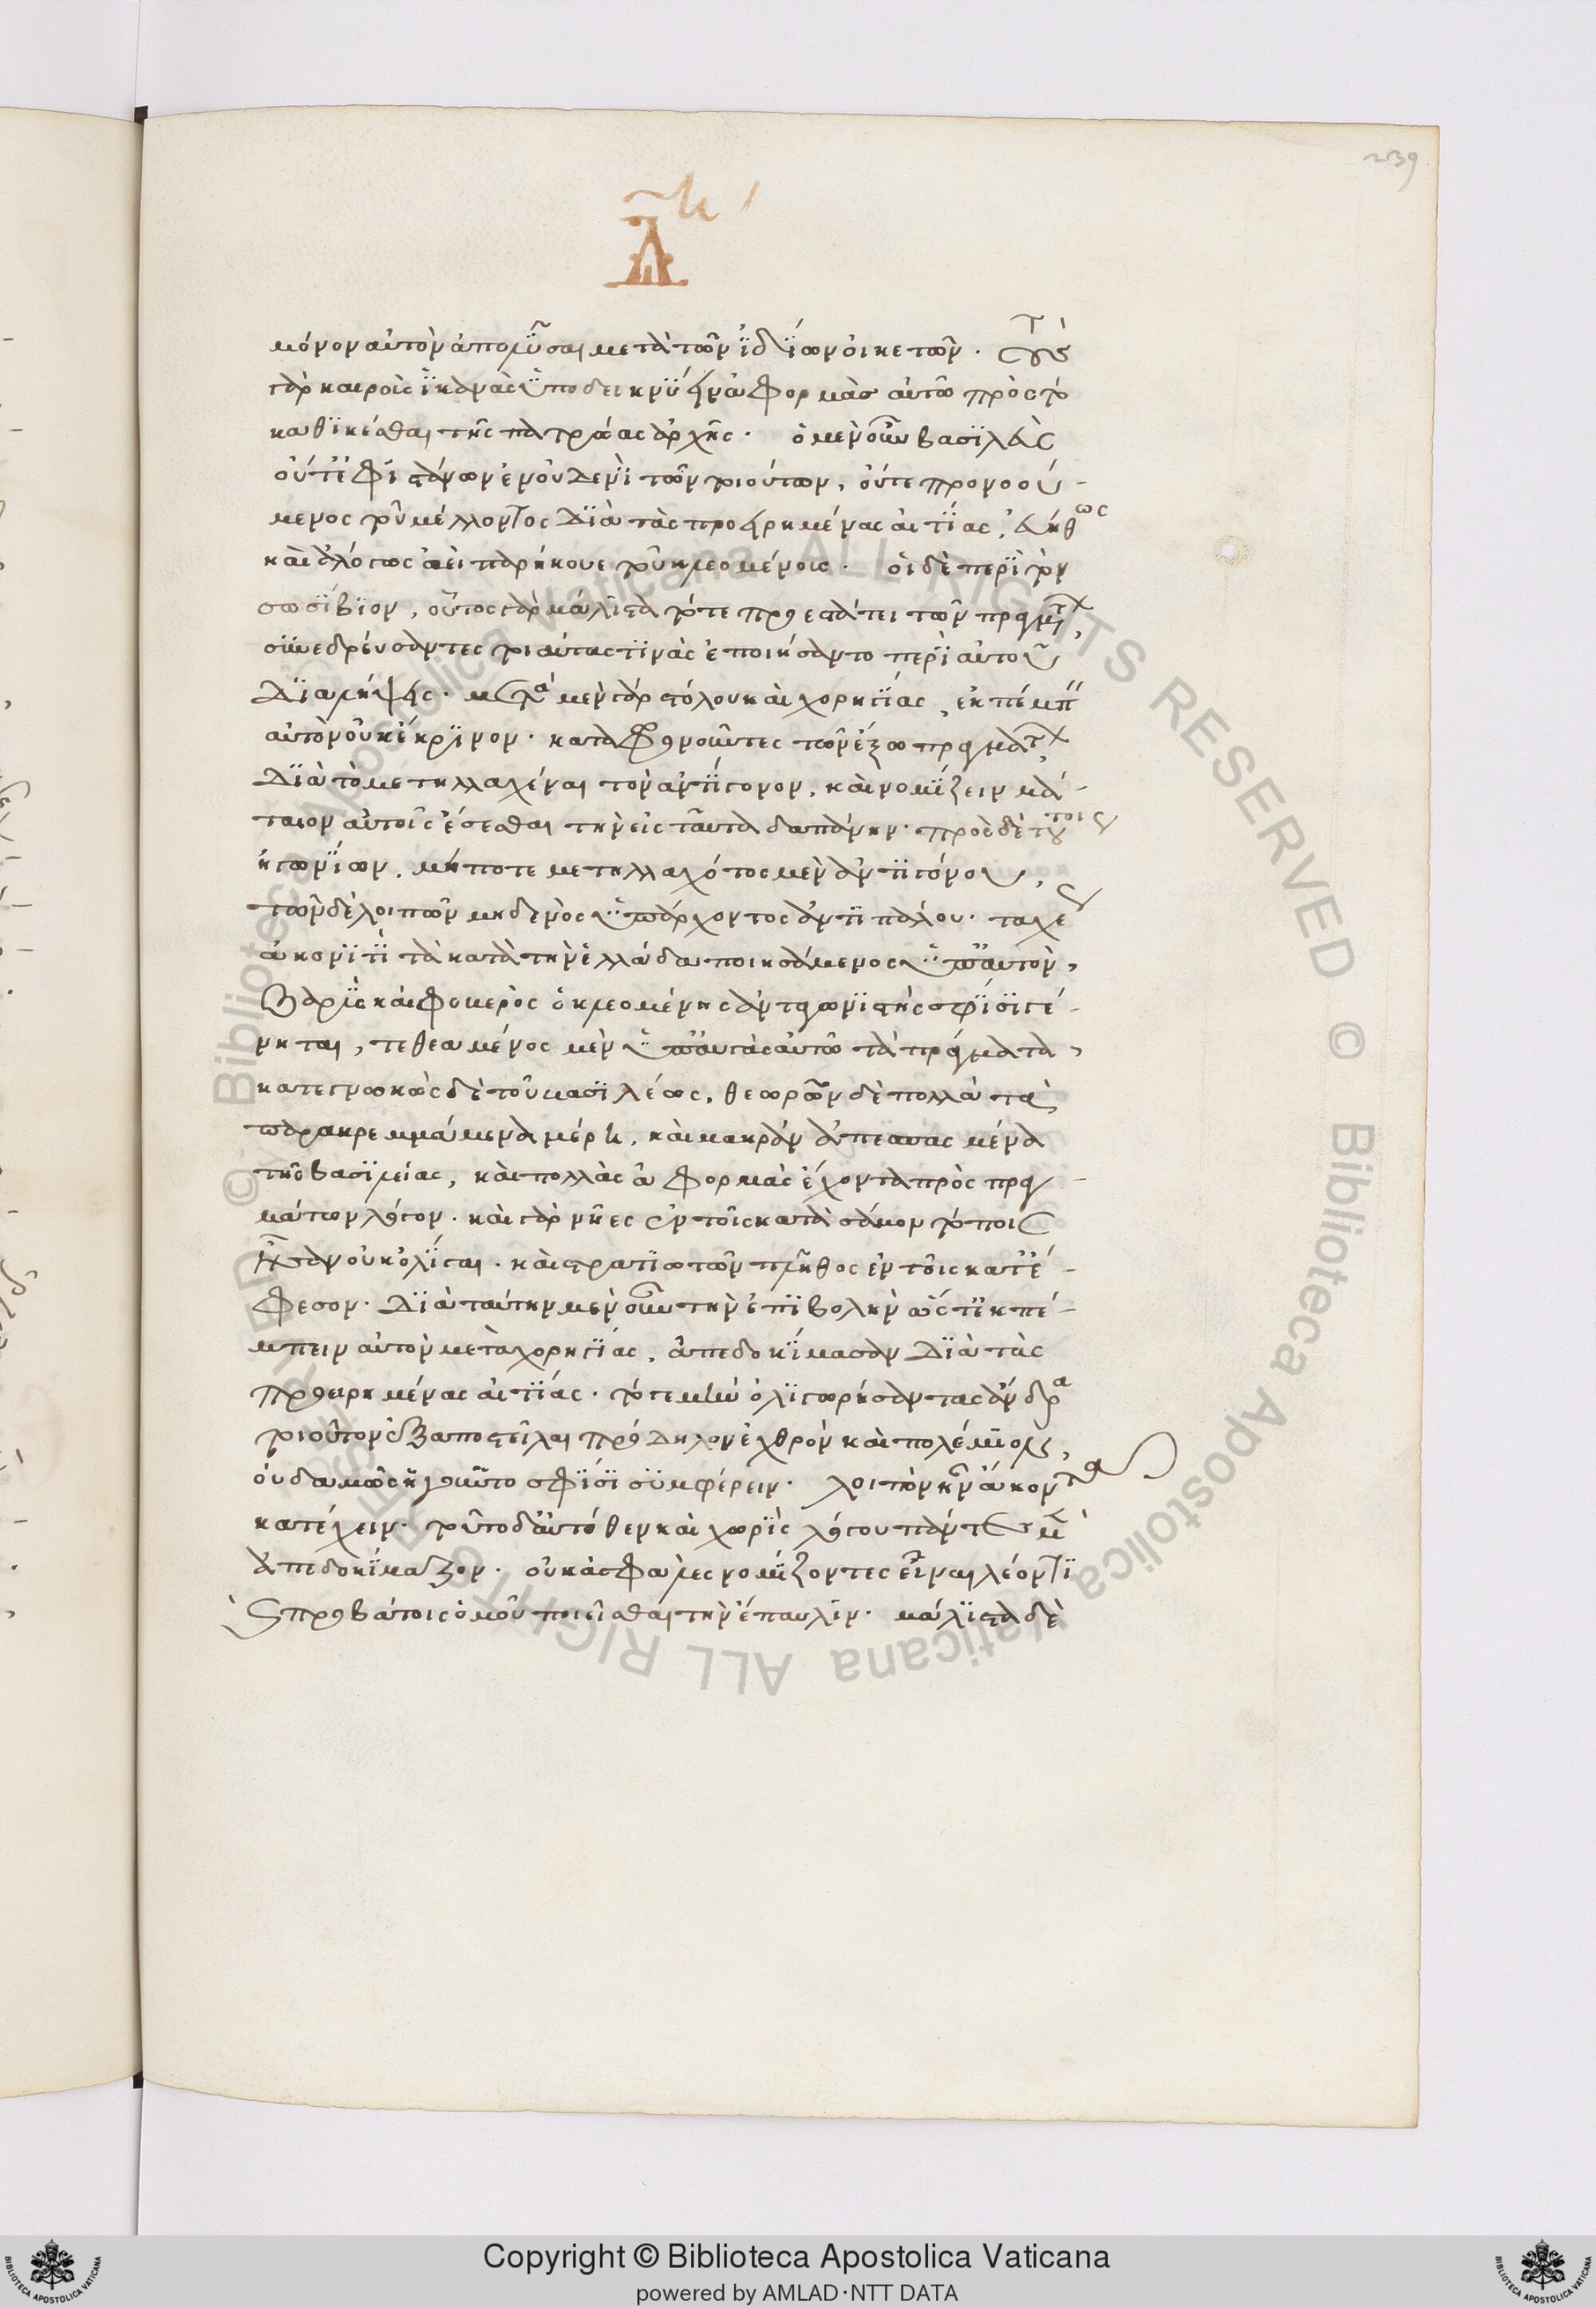 239
μόνον αὐτὸν ἀπολῦσαι μετὰ τῶν ἰδίων οἰκετῶν. τοὺς
γὰρ καιροὺς ἱκανὰς ὑποδεικνύειν ἀφορμὰς αὐτῷ πρὸς τὸ
καθικέσθαι τῆς πατρῴας ἀρχῆς. ὁ μὲν οὖν βασιλεὺς
οὔτ' ἐφιστάνων ἐν οὐδενὶ τῶν τοιούτων, οὔτε προνοού-
μενος τοῦ μέλλοντος διὰ τὰς προειρημένας αἰτίας, εὐήθως
καὶ ἀλόγως ἀεὶ παρήκουε τοῦ κλεομένους. οἱ δὲ περὶ τὸν
σωσίβιον, οὗτος γὰρ μάλιστα τότε προεστάτει τῶν πραγμάτ,
συνεδρεύσαντες τοιαύτας τινὰς ἐποιήσαντο περὶ αὐτοῦ
διαλήψεις. μετὰ μὲν γὰρ στόλου καὶ χορηγίας, ἐκπέμπ
αὐτὸν οὐκ ἔκρινον. καταφρονοῦντες τῶν ἔξω πραγμάτ,
διὰ τὸ μετηλλαχέναι τὸν ἀντίγονον, καὶ νομίζειν μά-
ταιον αὐτοῖς ἔσεσθαι τὴν εἰς ταῦτα δαπάνην. πρὸς δὲ τούτοις
ἠγωνίων, μήποτε μετηλλαχότος μὲν ἀντιγόνου,
τῶν δὲ λοιπῶν μηδενὸς ὑπάρχοντος ἀντιπάλου. ταχέως
ἀκονιτὶ τὰ κατὰ τὴν ἑλλάδα ποιησάμενος ὑφ' αὑτὸν,
βαρὺς καὶ φοβερὸς ὁ κλεομένης ἀνταγωνιστὴς σφίσι γέ-
νηται, τεθεαμένος μὲν ὑπ' αὐγὰς αὐτῶ τὰ πράγματα,
κατεγνωκὼς δὲ τοῦ βασιλέως, θεωρῶν δὲ πολλὰ τὰ
παρακρεμμάμενα μέρη, καὶ μακρὰν ἀπεσπασμένα
τῆς βασιλείας, καὶ πολλὰς ἀφορμὰς ἔχοντα πρὸς πραγ-
μάτων λόγον. καὶ γὰρ νῆες ἐν τοῖς κατὰ σάμον τόποις
ἦσαν οὐκ ὀλίγαι. καὶ στρατιωτῶν πλῆθος ἐν τοῖς κατ' ἔ-
φεσον. διὰ ταύτην μὲν οὖν τὴν ἐπιβολὴν ὥστ' ἐκπέ-
μπειν αὐτὸν μετὰ χορηγίας, ἀπεδοκίμασαν διὰ τὰς
προειρημένας αἰτίας. τό γε μὴν ὀλιγωρήσαντας ἄνδρα
τοιοῦτον ἐξαποστεῖλαι πρόδηλον ἐχθρὸν καὶ πολέμιον,
οὐδαμῶς ἡγοῦντο σφίσι συμφέρειν. λοιπὸν ἦν ἄκοντα
κατέχειν. τοῦτο δ' αὐτόθεν καὶ χωρὶς λόγου πάντες μὲν
ἀπεδοκίμαζον. οὐκ ἀσφαλὲς νομίζοντες εἶναι λέοντι
καὶ προβάτοις ὁμοῦ ποιεῖσθαι τὴν ἔπαυλιν. μάλιστα δὲ